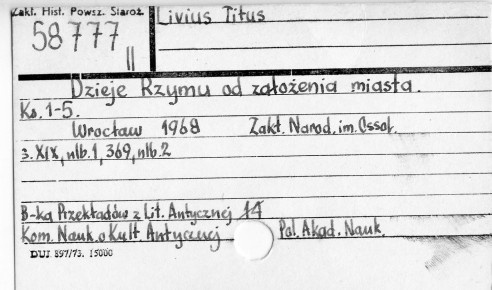 Zakł. Hist. Powsz. Staroż.
58777
II
Livius Titus
Dzieje Rzymu od założenia miasta.
Ks. 1-5.
Wrocław 1968 Zakł. Narod. im. Ossol.
s. XIX, nlb. 1, 369, nlb. 2
B-ka Przekładów z Lit. Antycznej 11
Kom. Nauk. o Kult. Antycznej Pol. Akad. Nauk.
DUJ. 897/73. 15000